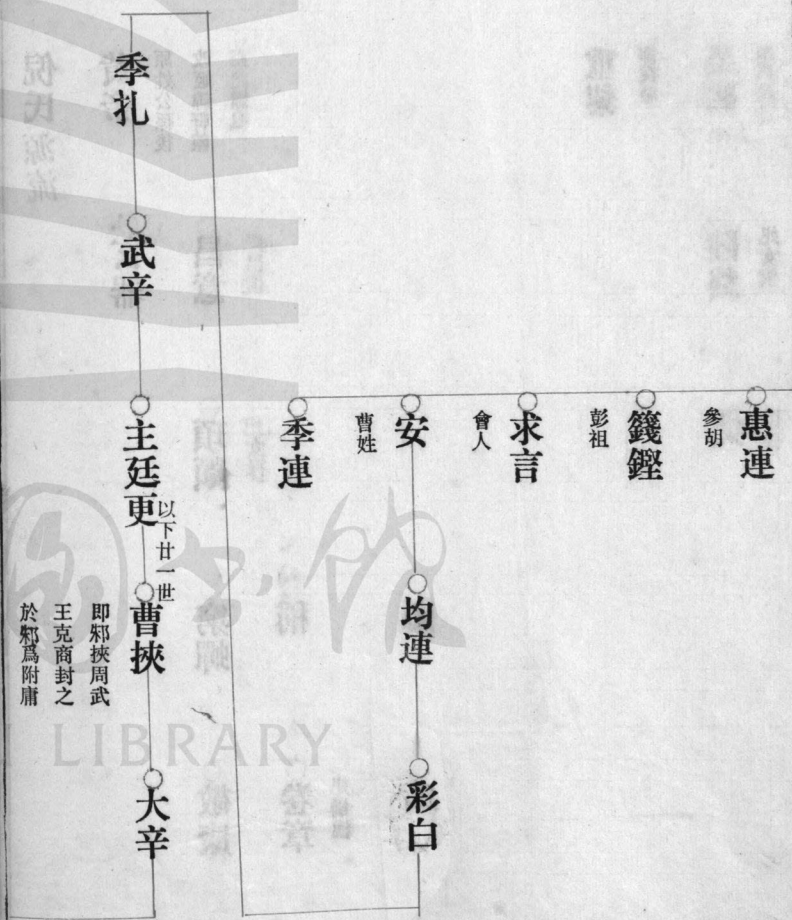 惠連
參胡
籛鏗
彭祖
求言
會人
安
曹姓
季連
均連
彩白
季扎
武辛
主廷更
以下廿一世
曹挾
即邾挾周武
王克商封之
於邾爲附庸
大辛
LIBRARY